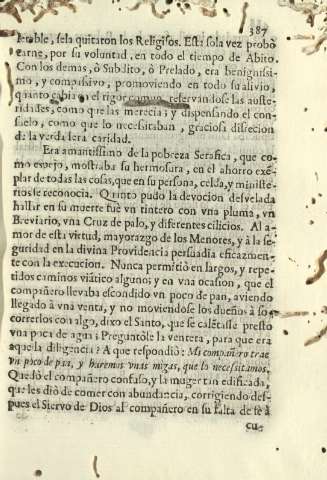 387
lerable, sela quitaron los Religiosos. Esta sola vez probò
carne, por su voluntad, en todo el tiempo de Abito.
Con los demas, ò Subdito, ò Prelado, era benignissi-
mo, y compassivo, promoviendo en todo su alivio,
quanto cabia en el rigor comun, reservandose las auste-
ridades, como que las merecia; y dispensando el con-
suelo, como que lo necessitaban, graciosa discrecion
de la verdadera caridad.
Era amantissimo de la pobreza Serafica, que co-
mo espejo, mostraba su hermosura, en el ahorro exẽ-
plar de todas las cosas, que en su persona, celda, y ministe-
rios se reconocia. Quanto pudo la devocion desvelada
hallar en su muerte fuè vn tintero con vna pluma, vn
Breviario, vna Cruz de palo, y diferentes cilicios. Al a-
mor de esta virtud, mayorazgo de los Menores, y à la se-
guridad en la divina Providencia persuadia eficazmen-
te con la execucion. Nunca permitiò en largos, y repe-
tidos caminos viatico alguno; y en vna ocasion, que el
compañero llevaba escondido vn poco de pan, aviendo
llegado à vna venta, y no moviendose los dueños à so-
correrlos con algo, dixo el Santo, que se calẽtasse presto
vna poca de agua; Preguntòle la ventera, para que era
aquella diligencia? A que respondiò: Mi compañero trae
vn poco de pan, y haremos vnas migas, que lo necessitamos.
Quedò el compañero confuso, y la muger tan edificada,
que les diò de comer con abundancia, corrigiendo des-
pues el Siervo de Dios al compañero en su falta de fè à
cu-